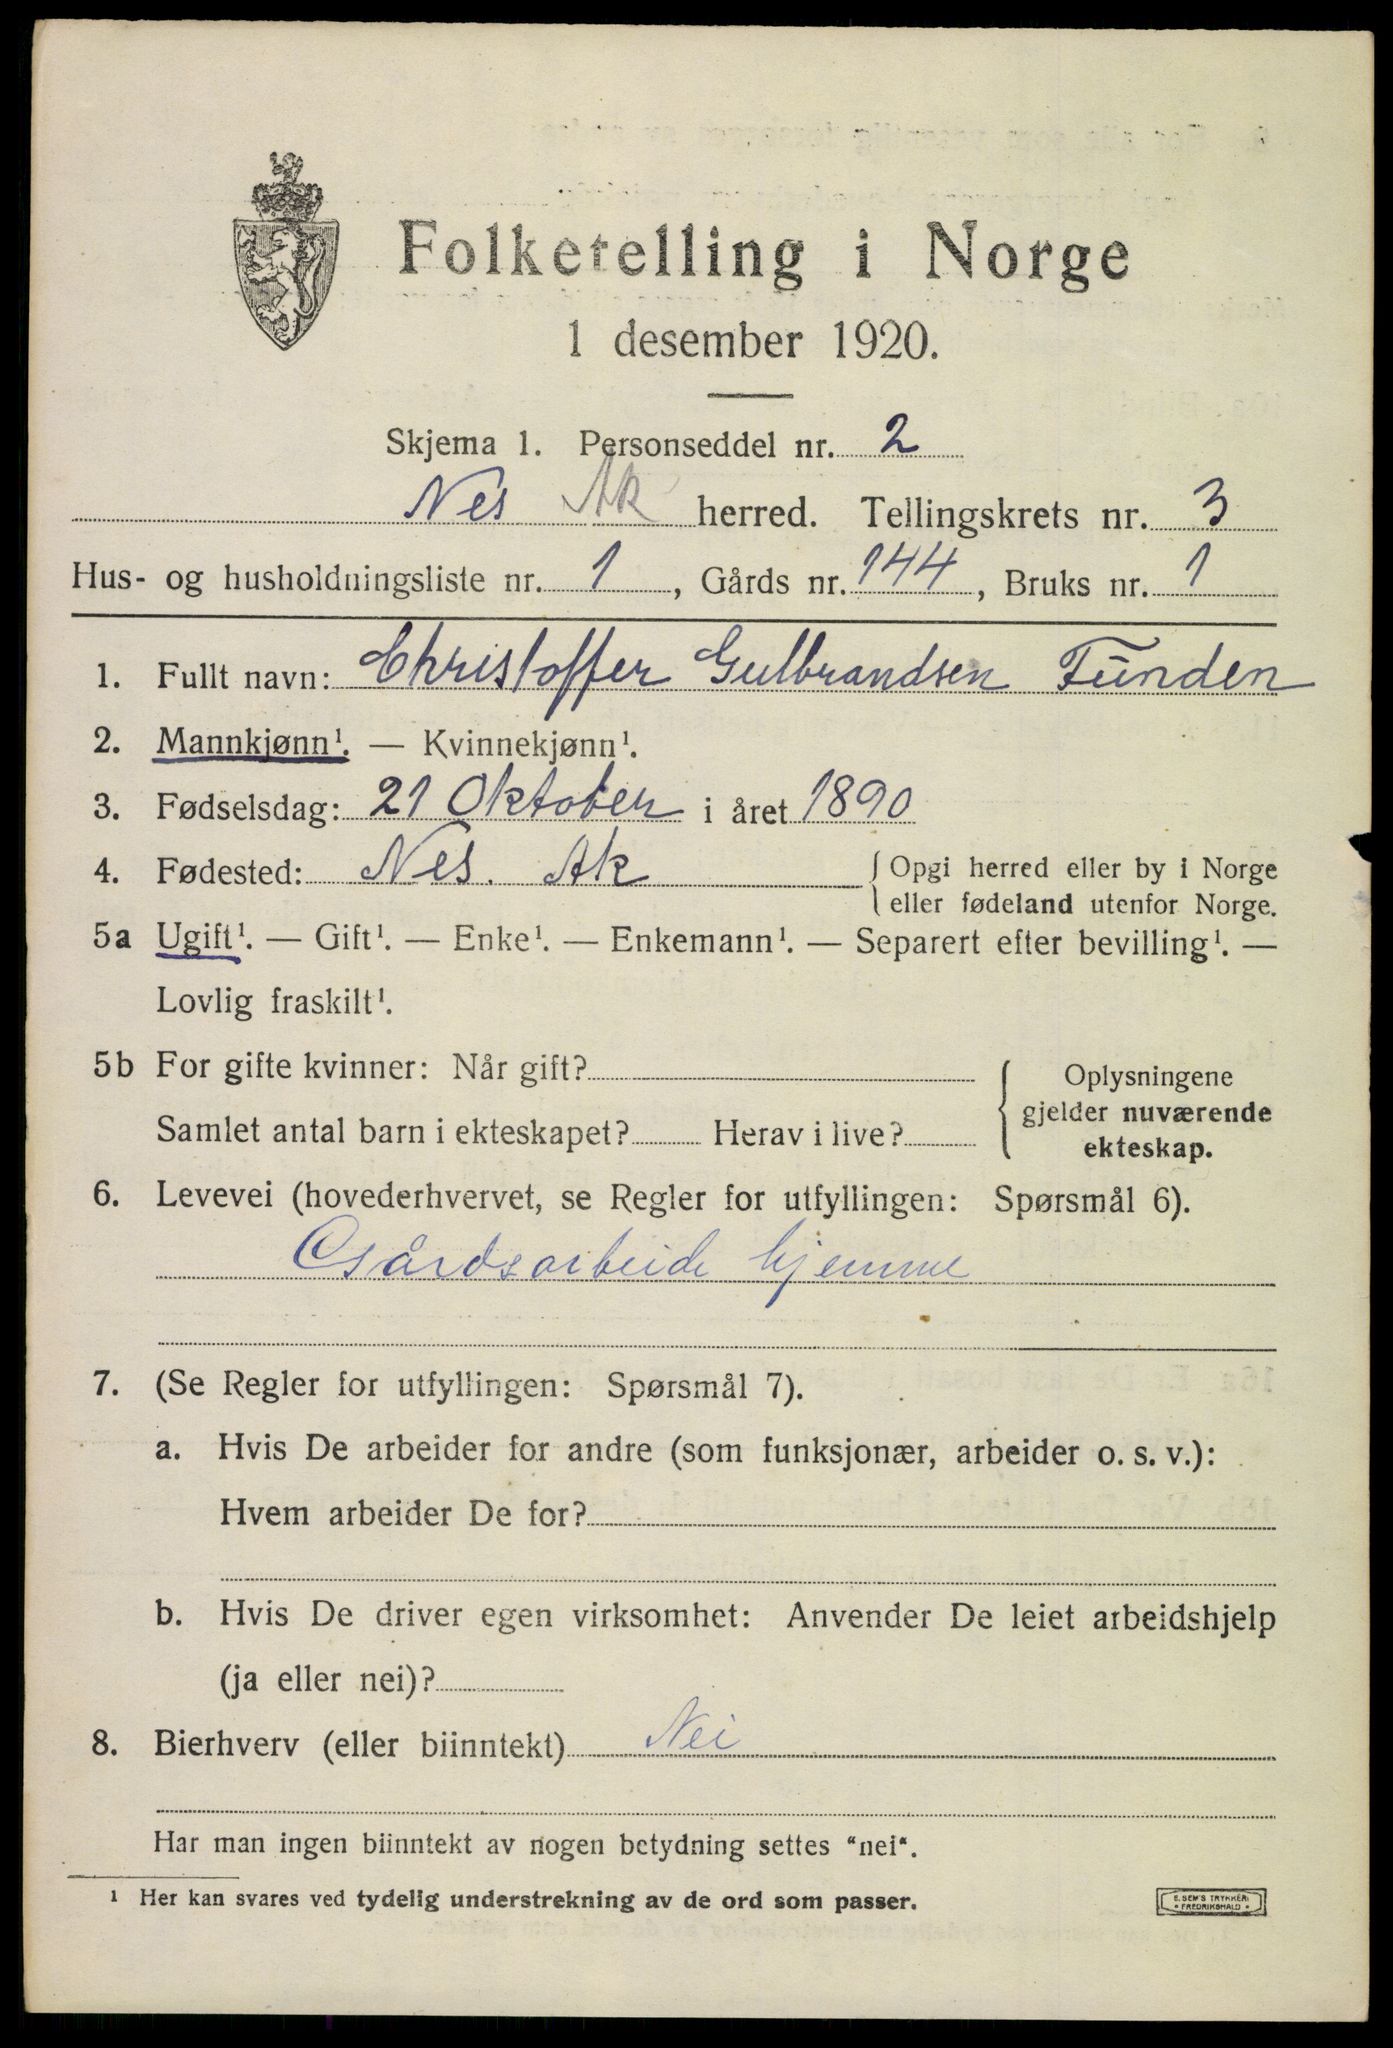 Folketelling i Norge
1 desember 1920.
Skjema 1. Personseddel nr. 2
Nes Ak herred. Tellingskrets nr. 3
Hus- og husholdningsliste nr. 1, Gårds nr. 144, Bruks nr. 1
1. Fullt navn: Christoffer Gulbrandsen Funden
2. Mannkjønn¹. — Kvinnekjønn¹.
3. Fødselsdag: 21 Oktober i året 1890
4. Fødested: Nes. Ak { Opgi herred eller by i Norge
eller fødeland utenfor Norge.
5a Ugift¹. — Gift¹. — Enke¹. — Enkemann¹. — Separert efter bevilling¹. —
Lovlig fraskilt¹.
5b For gifte kvinner: Når gift?
Samlet antal barn i ekteskapet? Herav i live?
Oplysningene
gjelder nuværende
ekteskap.
6. Levevei (hovederhvervet, se Regler for utfyllingen: Spørsmål 6).
Gårdsarbeide hjemme
7. (Se Regler for utfyllingen: Spørsmål 7).
a. Hvis De arbeider for andre (som funksjonær, arbeider o. s. v.):
Hvem arbeider De for?
b. Hvis De driver egen virksomhet: Anvender De leiet arbeidshjelp
(ja eller nei)?
8. Bierhverv (eller biinntekt) Nei
Har man ingen biinntekt av nogen betydning settes "nei".
¹ Her kan svares ved tydelig understrekning av de ord som passer.
E. SEM'S TRYKKERI
• FREDRIKSHALD •